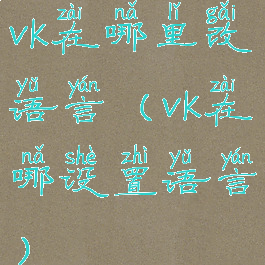 zài nǎ lǐ gǎi
vk在哪里改
yǔ yán zài
语言(vk在
nǎ shè zhì yǔ yán
哪设置语言
)